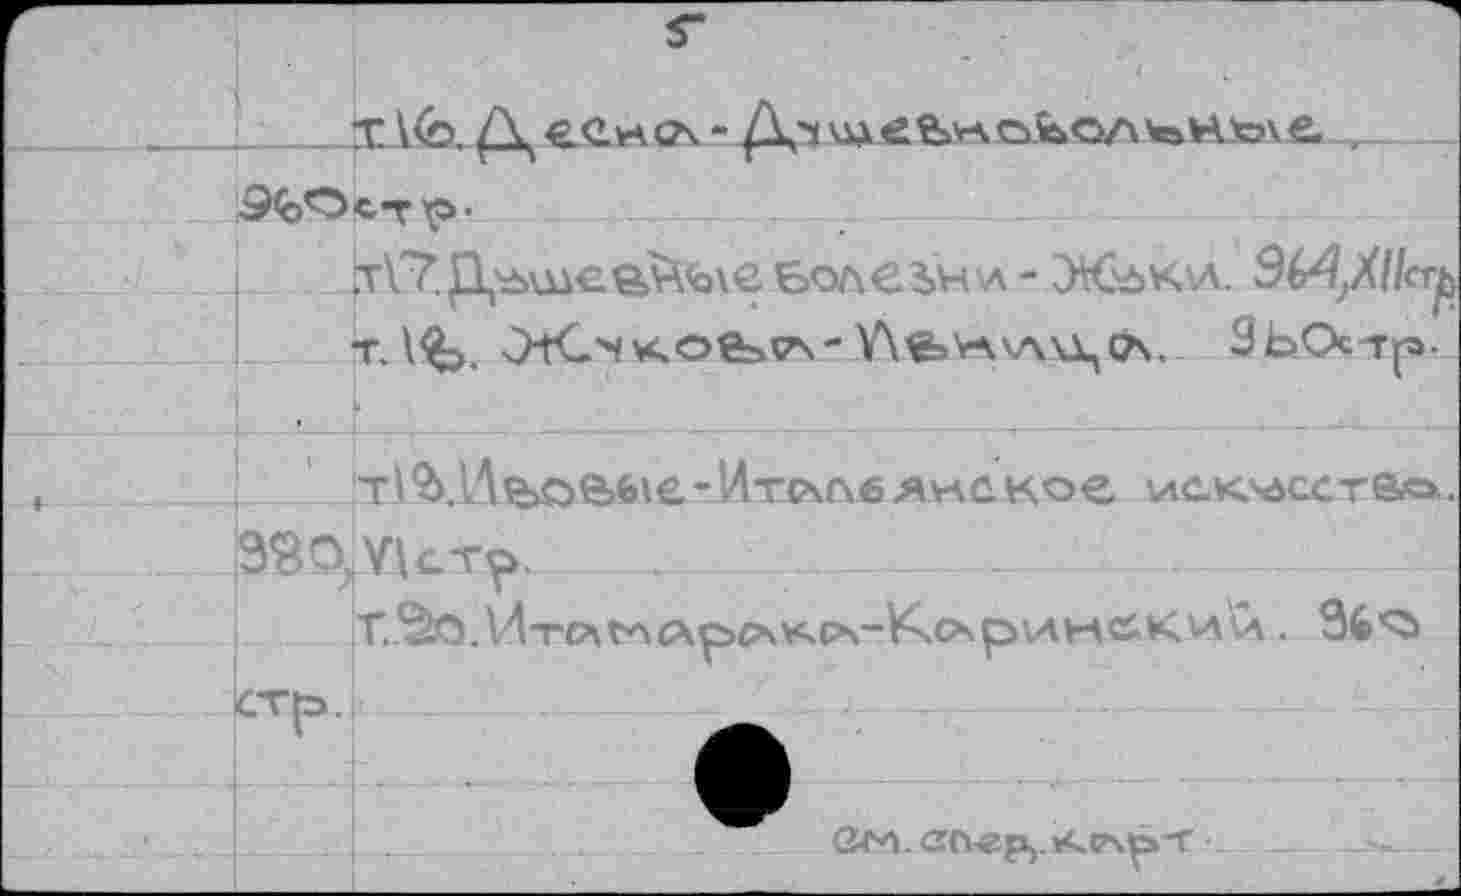 5
т.16. Десна - Душевнобольные.
960 стр.
т.17. Душевные болезни - Жуки. 964, XII стр.
т.18. Жукова - Ивница. 960 стр.
т.19. Ивовые - Итальянское искусство.
980, VI стр.
т.20. Итампарака - Каринский. 960
стр.
см. след. карт.